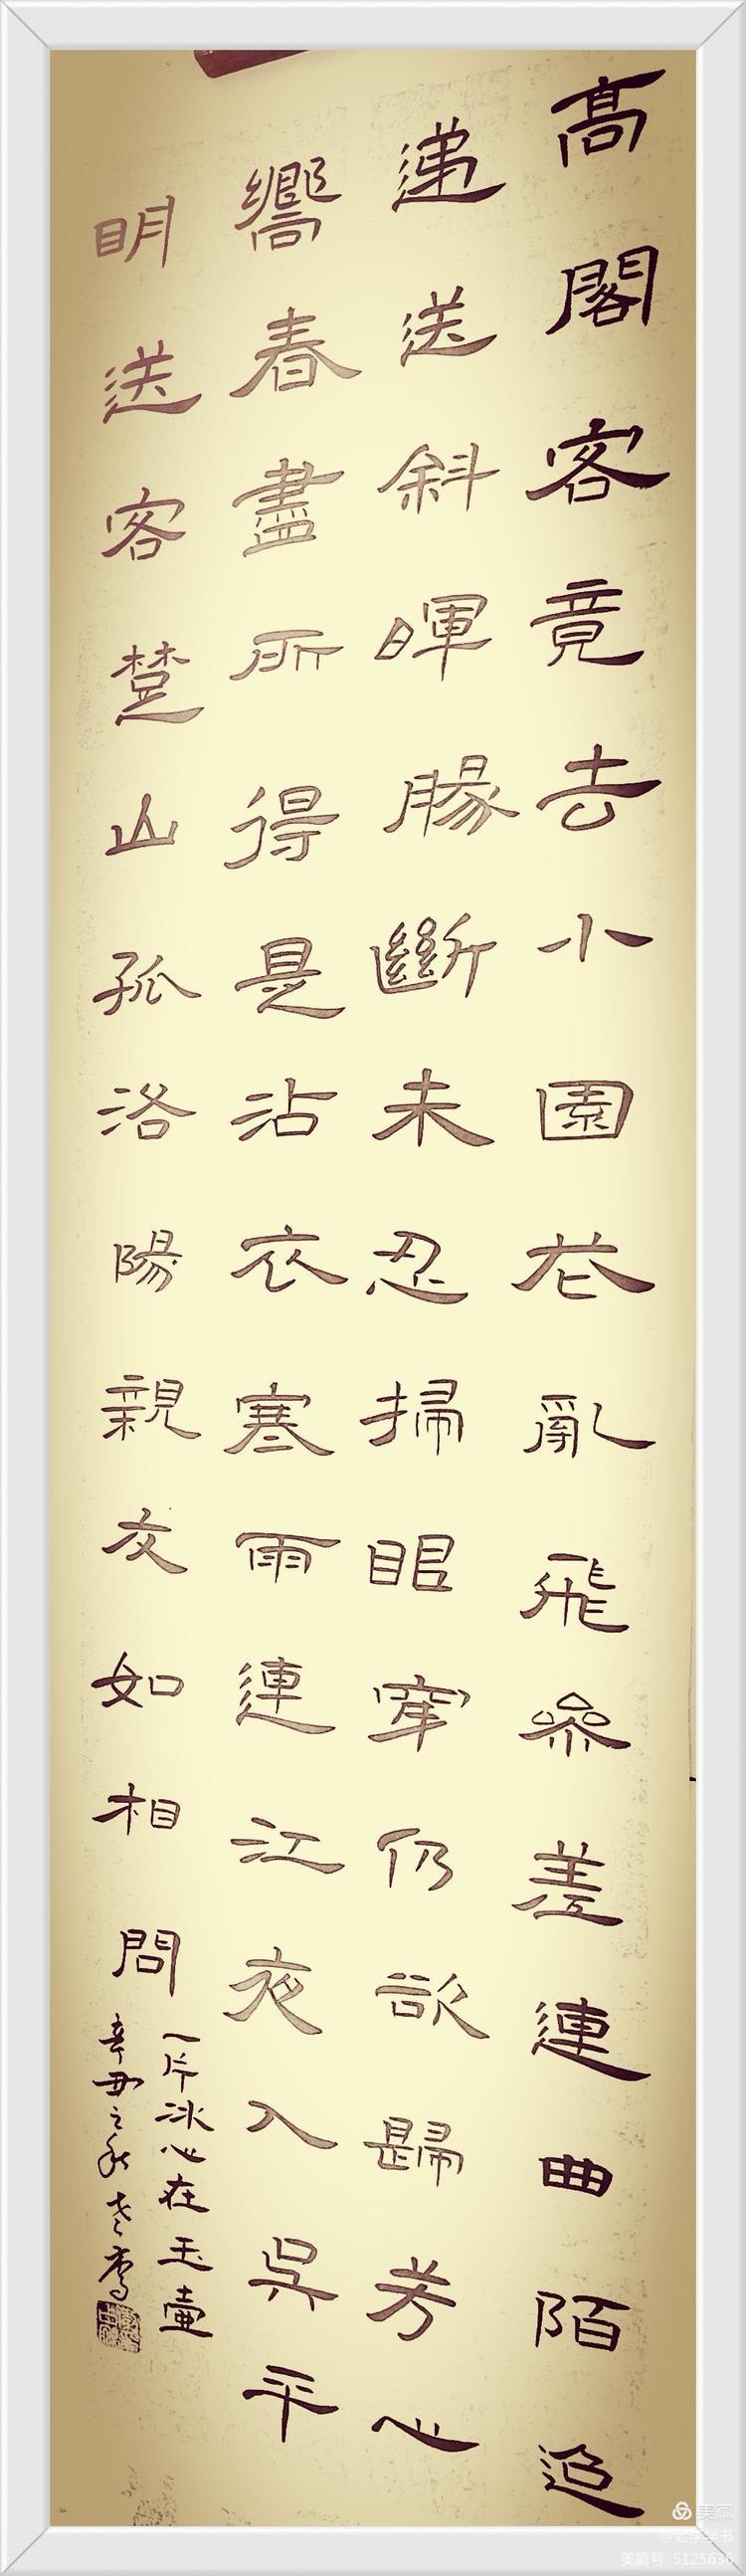 高閣客竟去小園花亂飛參差連曲陌迢
递送斜暉腸斷未忍掃眼穿仍欲歸芳心
嚮春盡所得是沾衣寒雨連江夜入吳平
明送客楚山孤洛陽親友如相問
一片冰心在玉壺
辛丑之秋
美篇
@老李学书
美篇号: 5125636